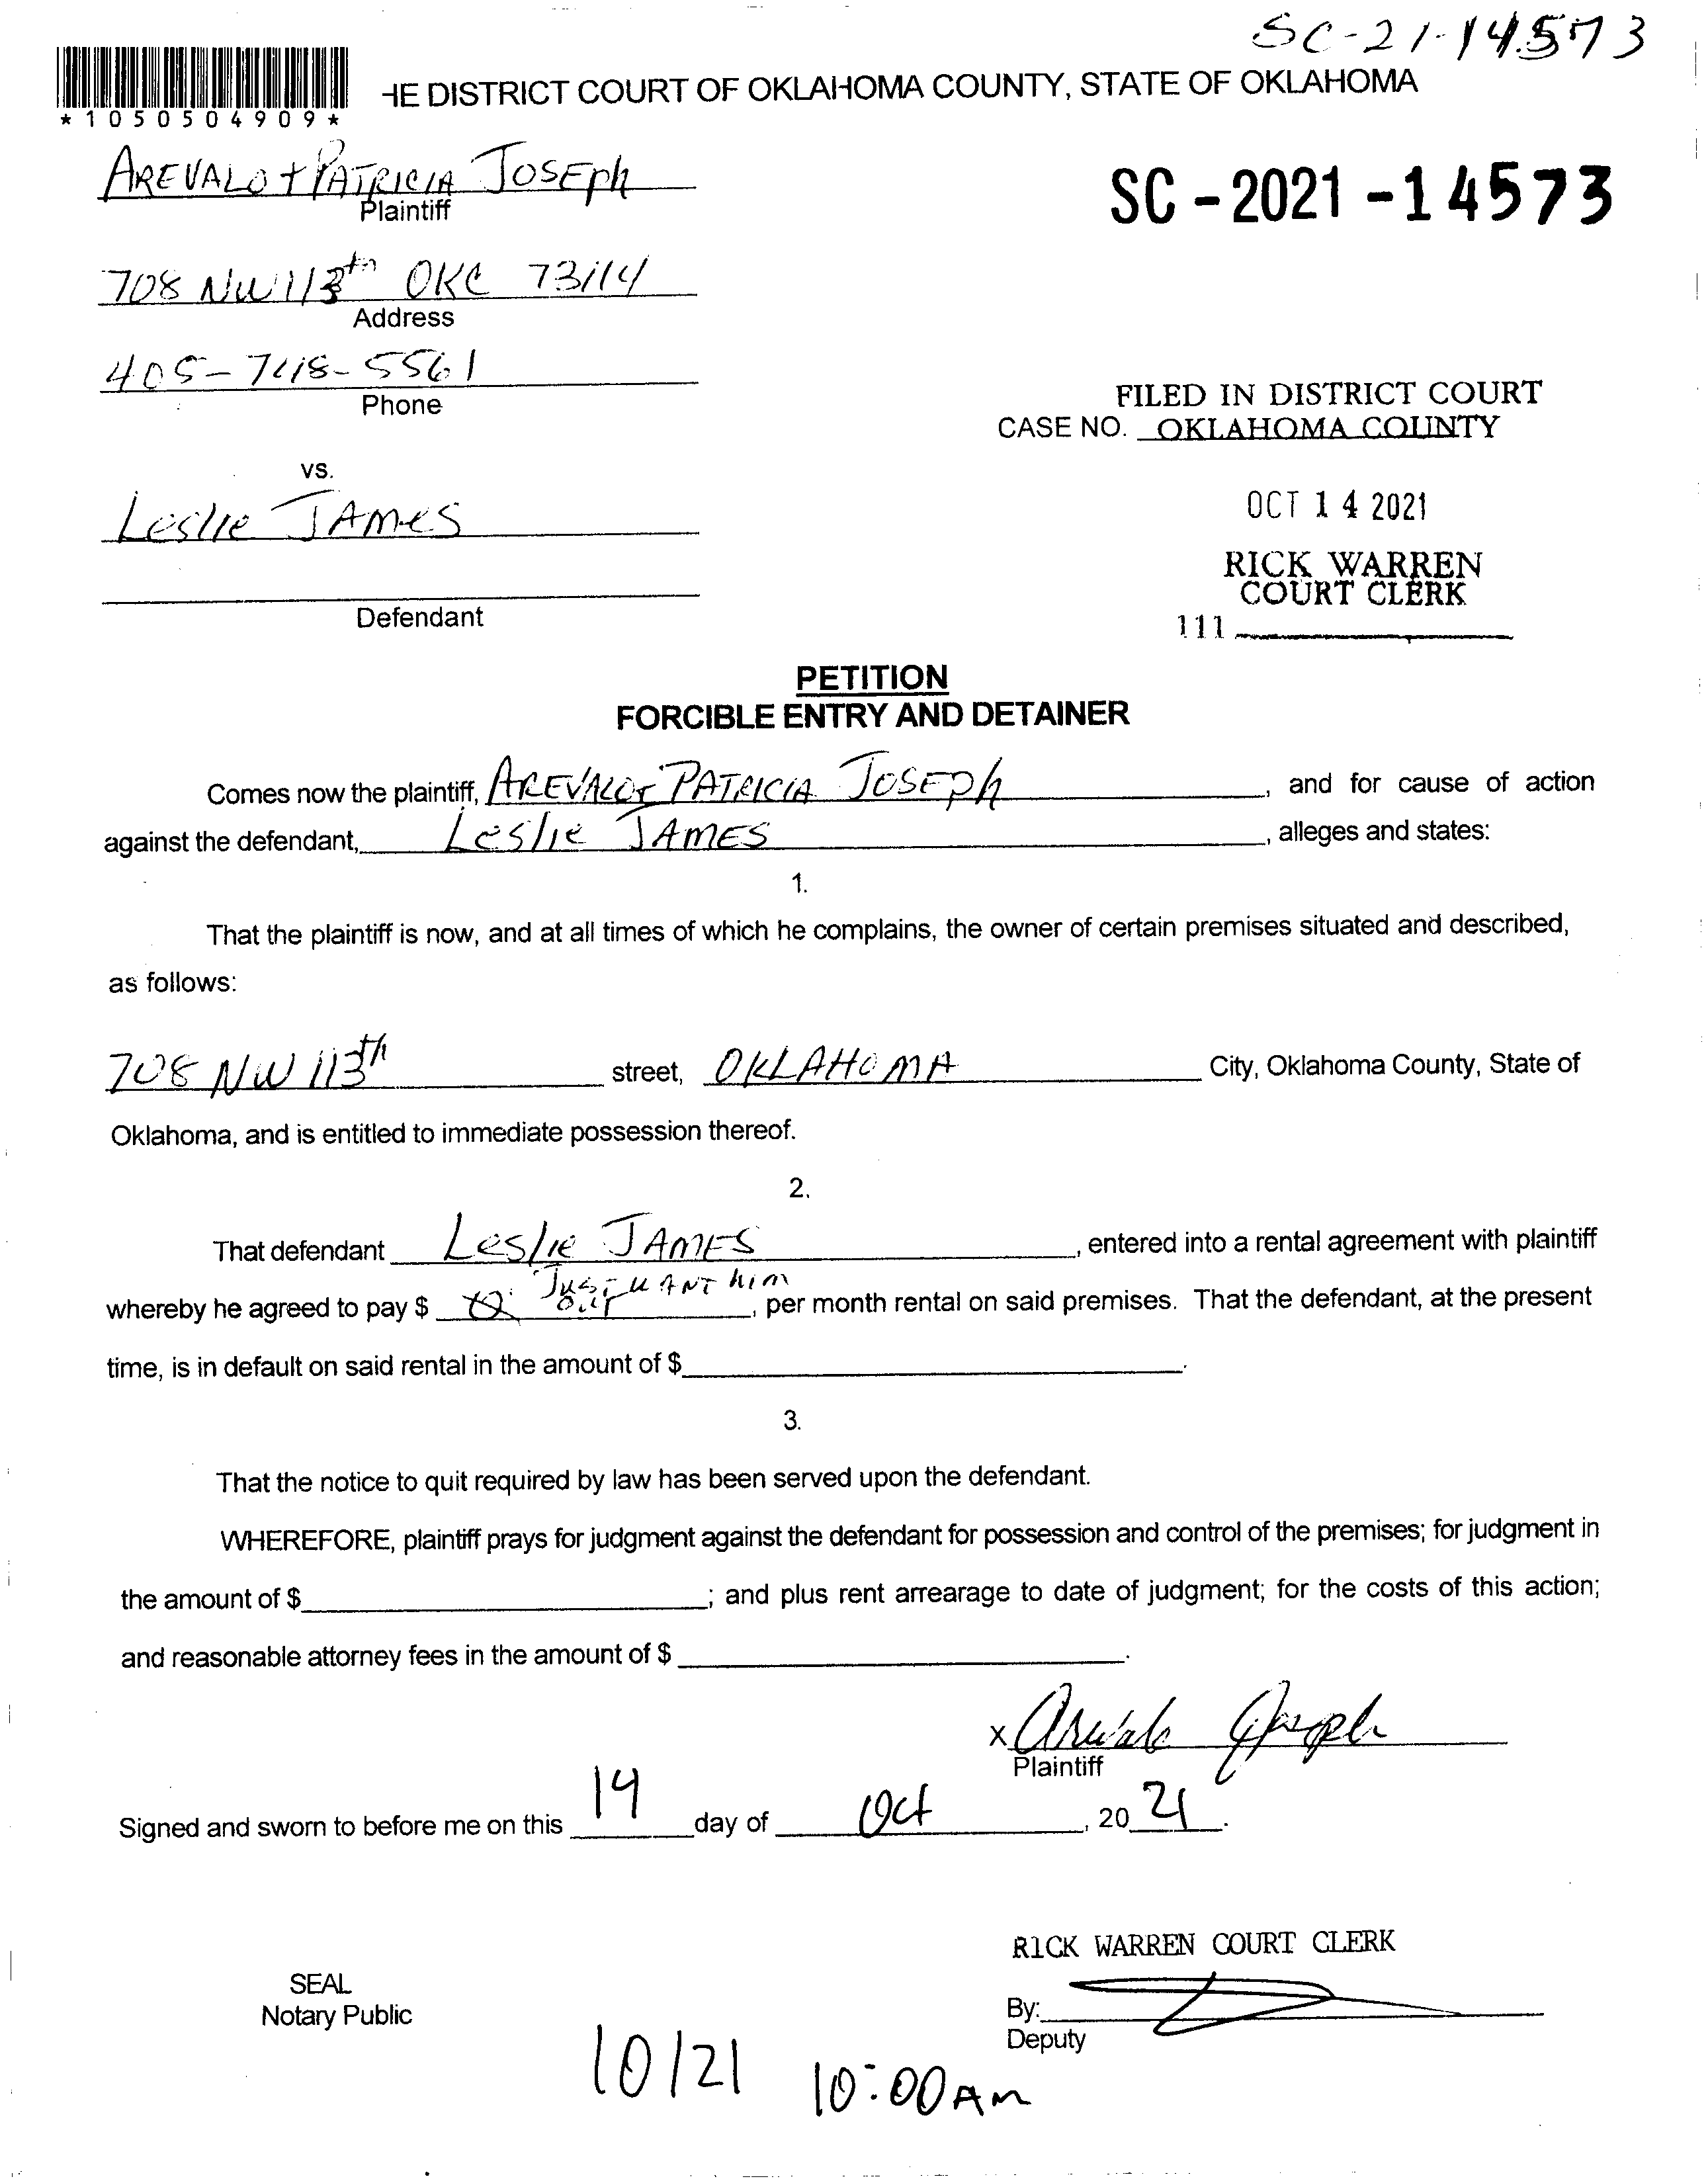 SC-21-14573
HE DISTRICT COURT OF OKLAHOMA COUNTY, STATE OF OKLAHOMA
*1050504909*
AREVALO + PATRICIA JOSEPh
Plaintiff
SC-2021-14573
708 NW 113th OKC 73114
Address
405-748-5561
Phone
FILED IN DISTRICT COURT
CASE NO. OKLAHOMA COUNTY
vs.
OCT 14 2021
Leslie JAMES
RICK WARREN
COURT CLERK
Defendant
111
PETITION
FORCIBLE ENTRY AND DETAINER
Comes now the plaintiff, AREVALO + PATRICIA JOSEPh, and for cause of action
against the defendant, Leslie JAMES, alleges and states:
1.
That the plaintiff is now, and at all times of which he complains, the owner of certain premises situated and described,
as follows:
708 NW 113th street, OKLAHOMA City, Oklahoma County, State of
Oklahoma, and is entitled to immediate possession thereof.
2.
That defendant Leslie JAMES, entered into a rental agreement with plaintiff
JUST WANT him
whereby he agreed to pay $ OUT, per month rental on said premises. That the defendant, at the present
time, is in default on said rental in the amount of $.
3.
That the notice to quit required by law has been served upon the defendant.
WHEREFORE, plaintiff prays for judgment against the defendant for possession and control of the premises; for judgment in
the amount of $; and plus rent arrearage to date of judgment; for the costs of this action;
and reasonable attorney fees in the amount of $.
X Arevalo Joseph
Plaintiff
Signed and sworn to before me on this 14 day of Oct, 20 21.
RICK WARREN COURT CLERK
SEAL
Notary Public
By:
Deputy
10/21 10:00 AM